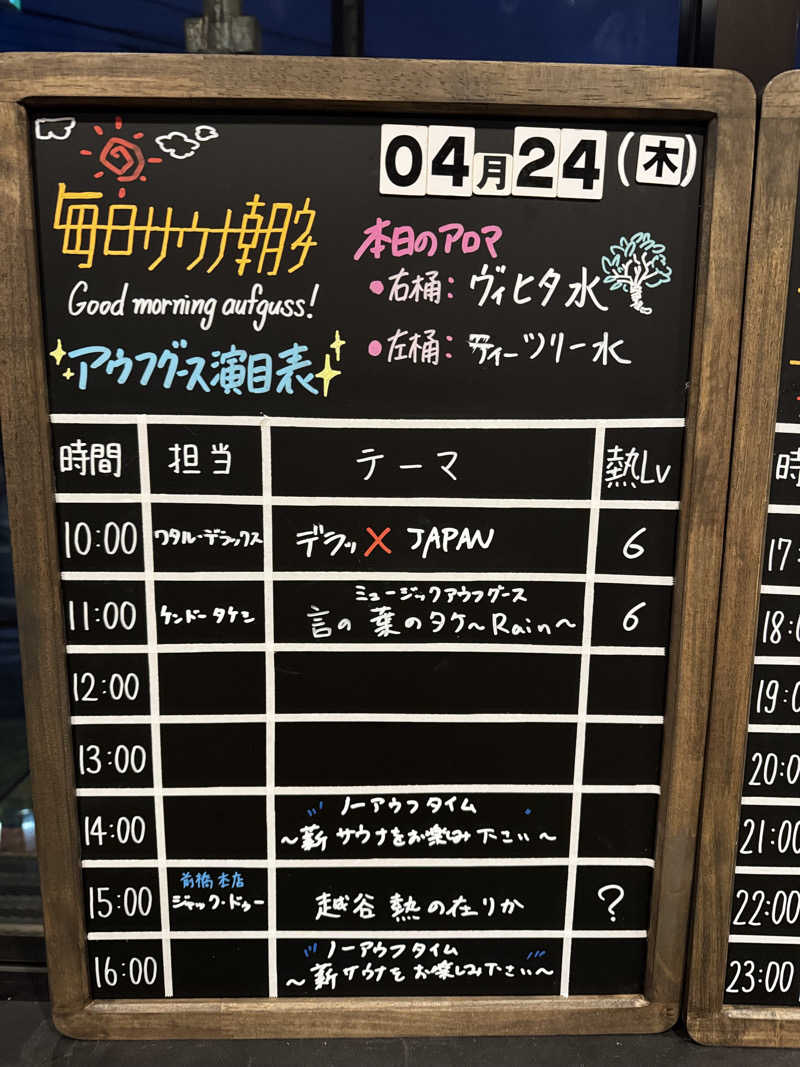 04月24(木)
毎日サウナ朝タ
Good morning aufguss!
アウフグース演目表
本日のアロマ
●右桶: ヴィヒタ水
●左桶: ティーツリー水
時間 担当 テーマ 熱Lv
10:00 ワタル・デラックス デラッ✕JAPAN 6
11:00 ケンドータケシ ミュージックアウフグース
言の葉のタケ〜Rain〜 6
12:00
13:00
14:00 ノーアウフタイム
〜薪サウナをお楽しみ下さい〜
15:00 前橋本店
ジャック・ドゥー 越谷 熱の在りか ?
16:00 ノーアウフタイム
〜薪サウナをお楽しみ下さい〜
時
17:
18:0
19:0
20:0
21:00
22:00
23:00